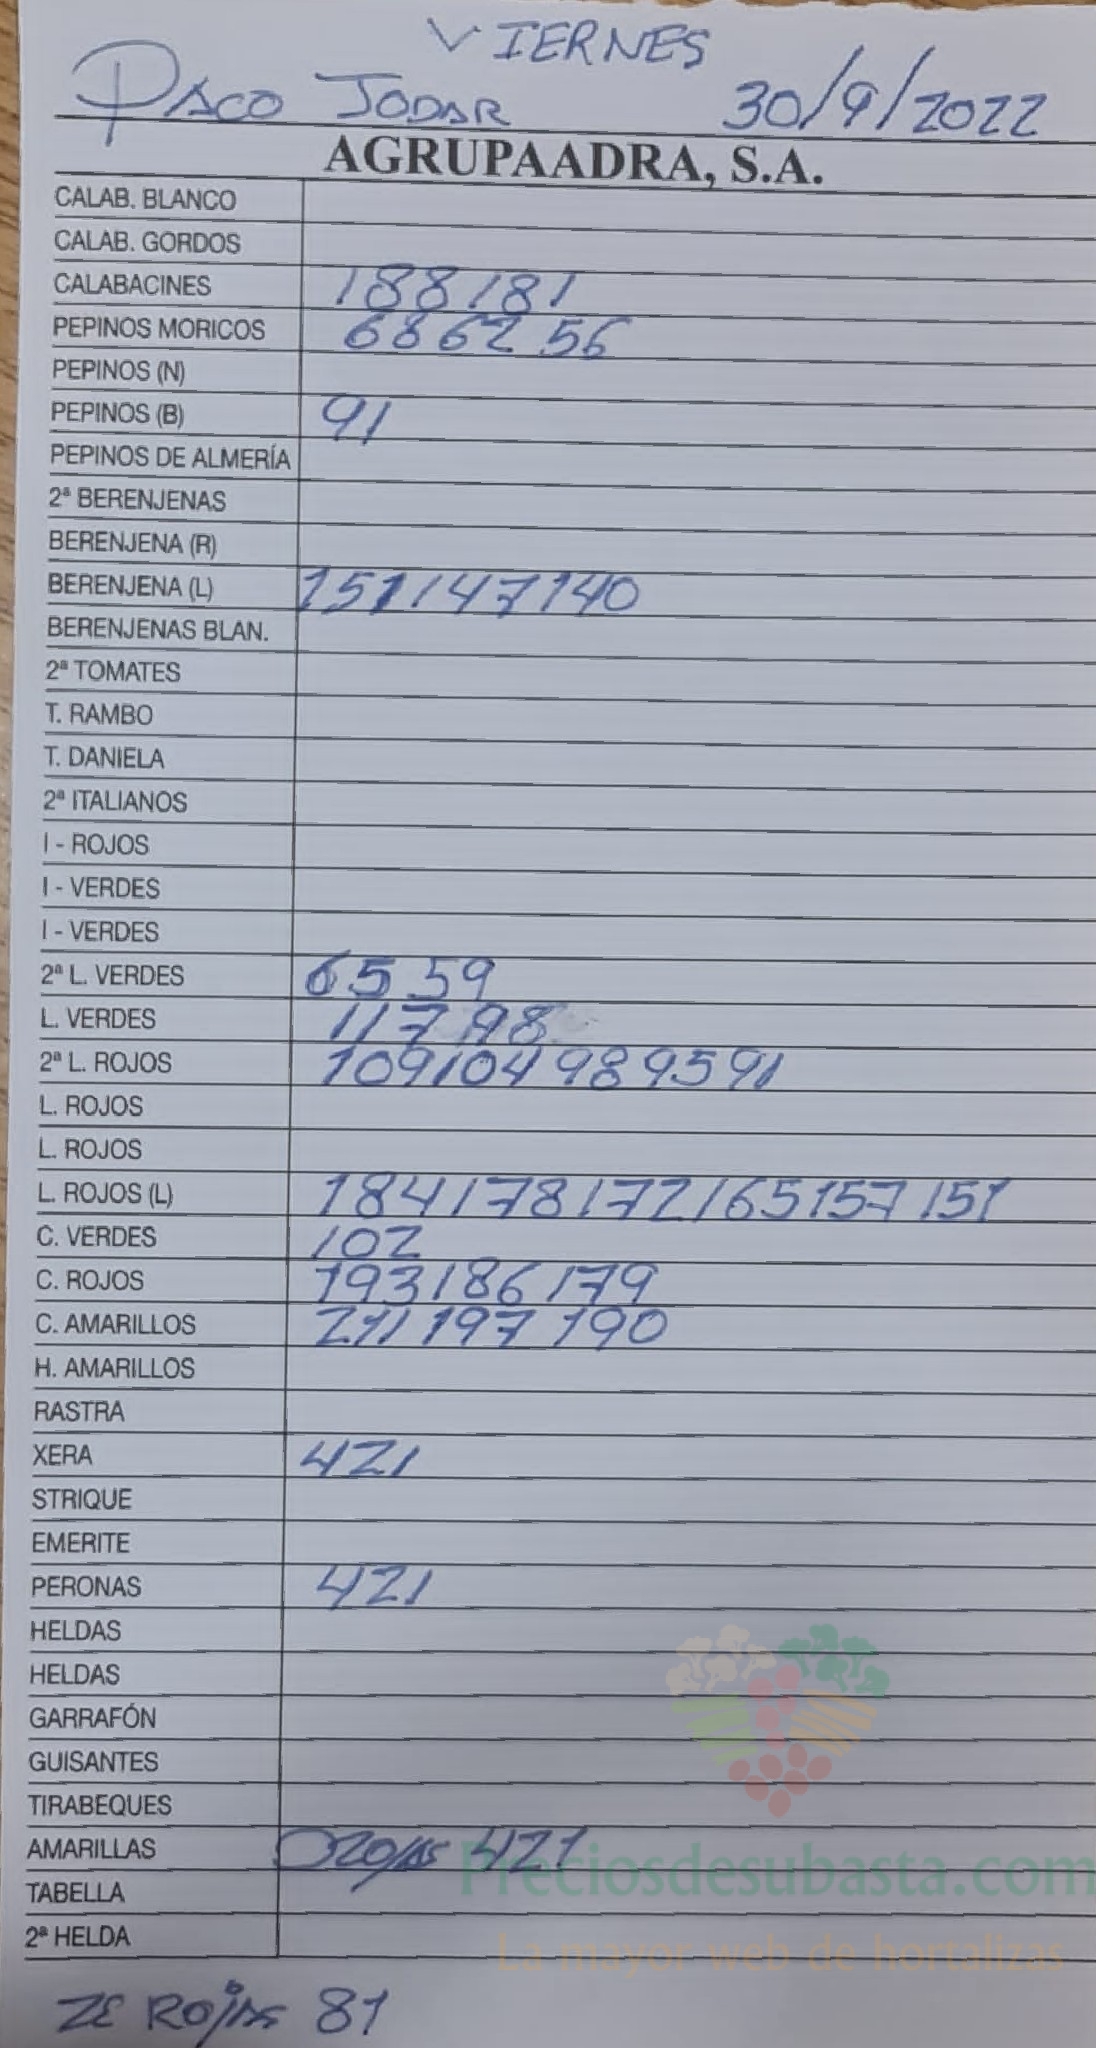 VIERNES
PACO JODAR 30/9/2022
AGRUPAADRA, S.A.
CALAB. BLANCO
CALAB. GORDOS
CALABACINES 188 181
PEPINOS MORICOS 68 62 56
PEPINOS (N)
PEPINOS (B) 91
PEPINOS DE ALMERÍA
2ª BERENJENAS
BERENJENA (R)
BERENJENA (L) 151 147 140
BERENJENAS BLAN.
2ª TOMATES
T. RAMBO
T. DANIELA
2ª ITALIANOS
I - ROJOS
I - VERDES
I - VERDES
2ª L. VERDES 65 59
L. VERDES 117 98
2ª L. ROJOS 109 104 98 95 91
L. ROJOS
L. ROJOS
L. ROJOS (L) 184 178 172 165 157 151
C. VERDES 102
C. ROJOS 193 186 179
C. AMARILLOS 211 197 190
H. AMARILLOS
RASTRA
XERA 421
STRIQUE
EMERITE
PERONAS 421
HELDAS
HELDAS
GARRAFÓN
GUISANTES
TIRABEQUES
AMARILLAS 421
Preciosdesubasta.com
TABELLA
2ª HELDA
La mayor web de hortalizas
ROjAS 81